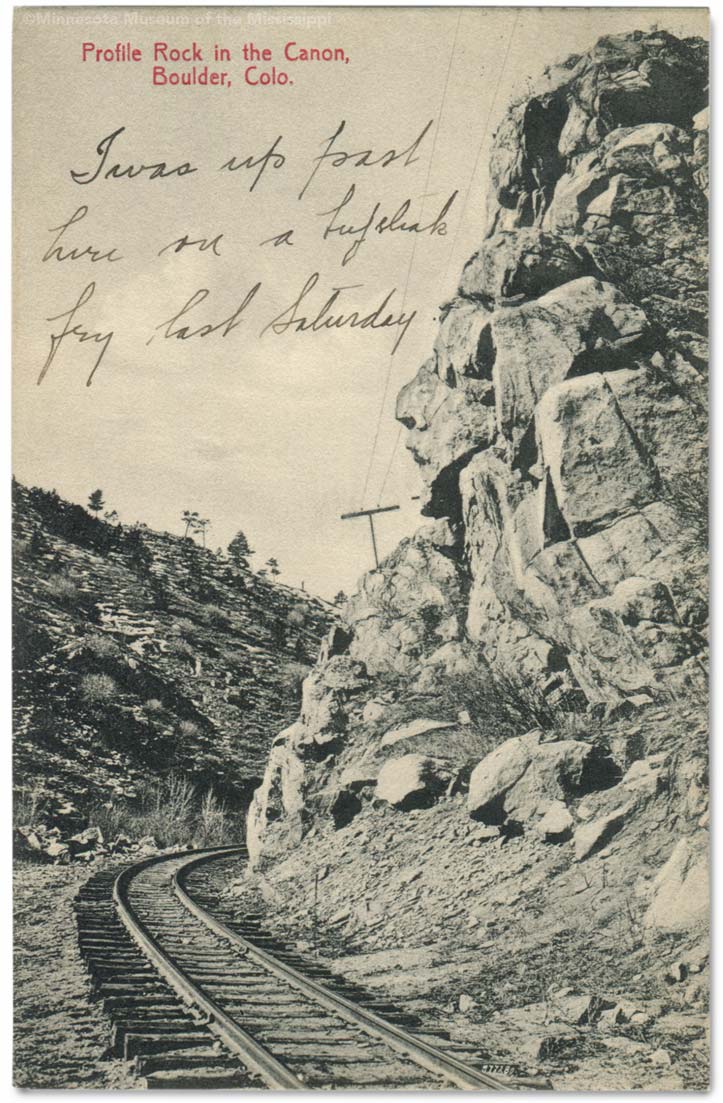 ©Minnesota Museum of the Mississippi
Profile Rock in the Canon,
Boulder, Colo.
I was up past
here on a
fry last Saturday.